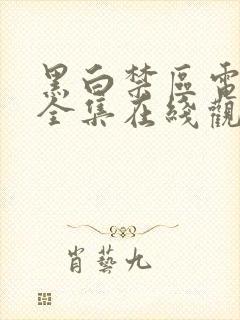 黑白禁區電
全集在綫觀
肖藝九